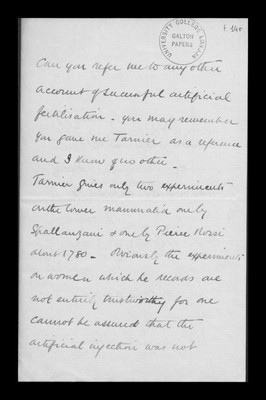 UNIVERSITY COLLEGE LONDON
GALTON
PAPERS
Can you refer me to any other
account of successful artificial
fertilisation - you may remember
you gave me Tarnier as a reference
and I know of no other -
Tarnier gives only two experiments
on the lower mammalia one by
Spallanzani & one by Pierre Rossi
about 1780 - Obviously the experiments
on women which he records are
not entirely trustworthy for one
cannot be assured that the
artificial injection was not